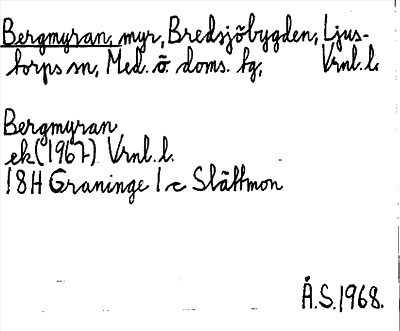 Bergmyran, myr, Bredsjöbygden, Ljus-
torps sn, Med. ö. doms. tg, Vrnl. l.
Bergmyran
ek (1967) Vrnl. l.
18H Graninge 1 c Slättmon
Å.S. 1968.